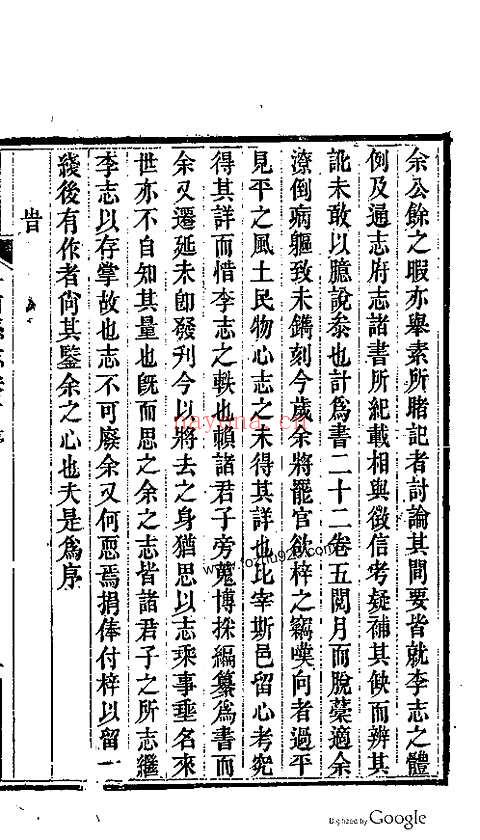 余公餘之暇亦舉素所睹記者討論其間要皆就李志之體
例及通志府志諸書所紀載相與徵信考疑補其缺而辨其
訛未敢以臆說叅也計爲書二十二卷五閱月而脫藁適余
潦倒病軀致未鐫刻今歲余將罷官欲梓之竊嘆向者過平
見平之風土民物心志之未得其詳也比宰斯邑留心考究
得其詳而惜李志之軼也頼諸君子旁蒐博採編纂爲書而
余又遷延未卽發刊今以將去之身猶思以志乘事垂名來
世亦不自知其量也旣而思之余之志皆諸君子之所志繼
李志以存掌故也志不可廢余又何恧焉捐俸付梓以留一
綫後有作者尙其鑒余之心也夫是爲序
旹
nayona.com
www.fozhu920.com
Digitized by Google